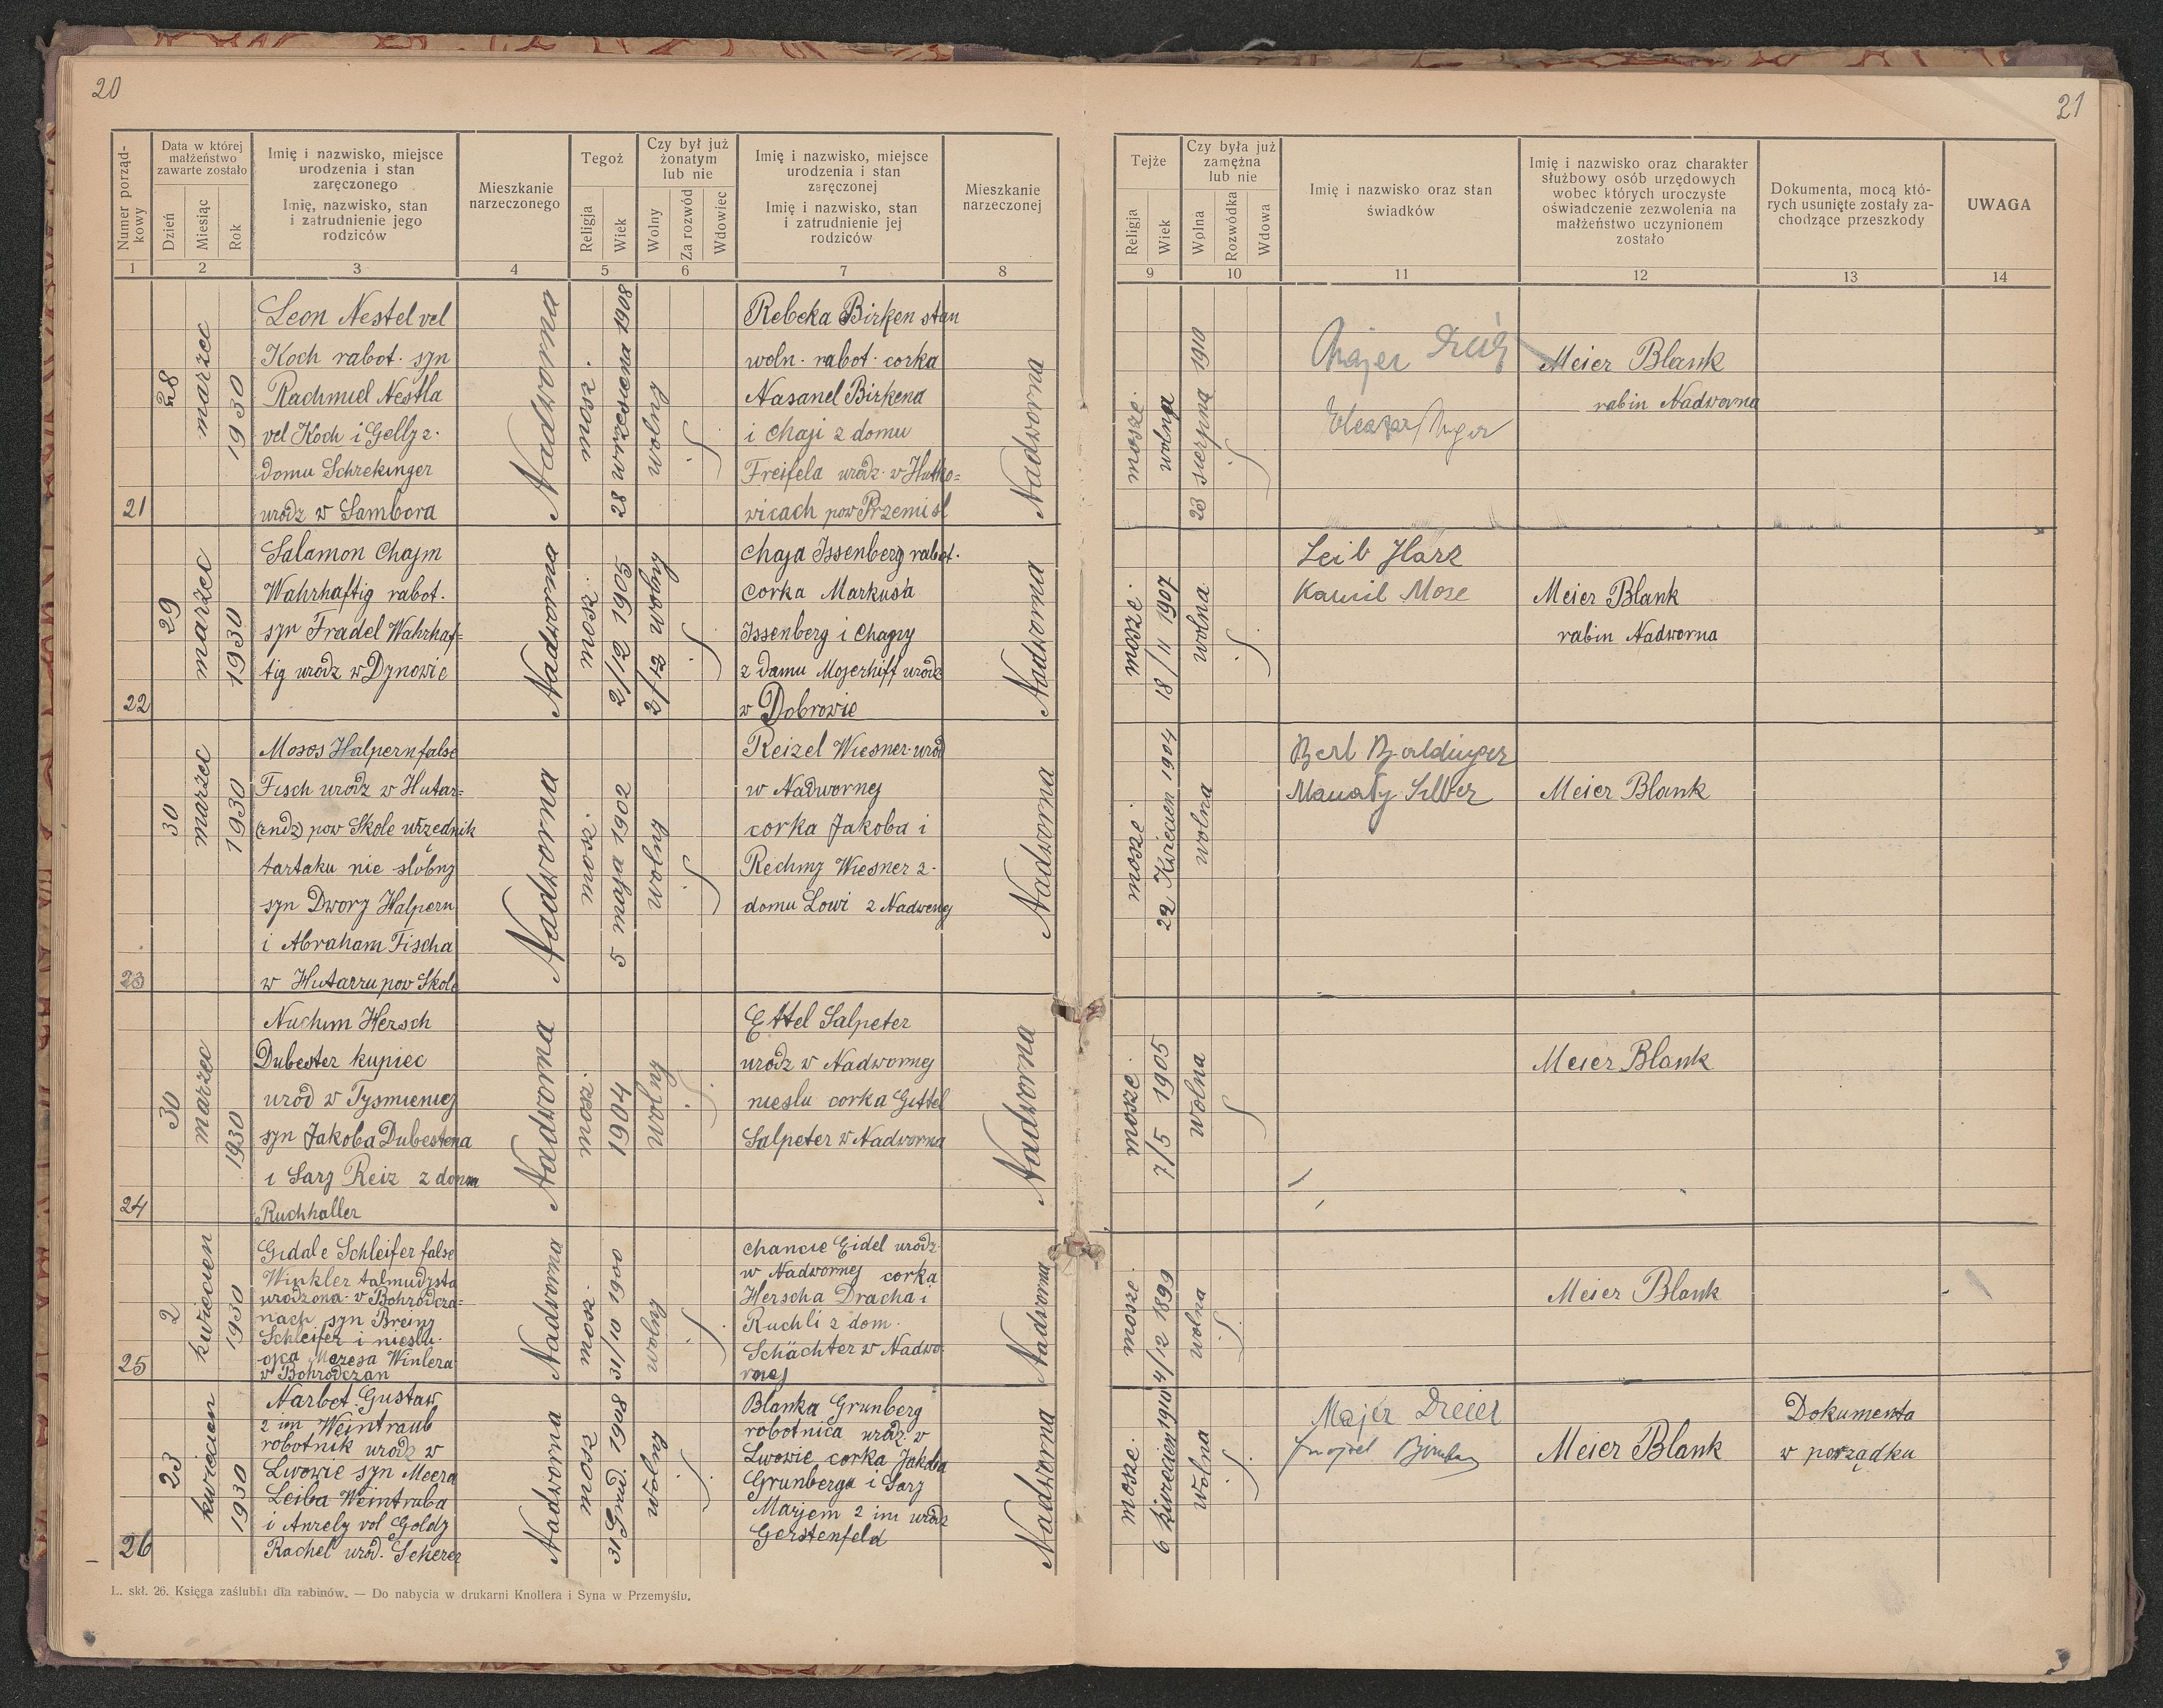 20
21
Numer porządkowy
Data w której małżeństwo zawarte zostało
Dzień
Miesiąc
Rok
Imię i nazwisko, miejsce urodzenia i stan zaręczonego
Imię, nazwisko, stan i zatrudnienie jego rodziców
Mieszkanie narzeczonego
Tegoż
Religja
Wiek
Czy był już żonatym lub nie
Wolny
Za rozwód
Wdowiec
Imię i nazwisko, miejsce urodzenia i stan zaręczonej
Imię i nazwisko, stan i zatrudnienie jej rodziców
Mieszkanie narzeczonej
Tejże
Religja
Wiek
Czy była już zamężna lub nie
Wolna
Rozwódka
Wdowa
Imię i nazwisko oraz stan świadków
Imię i nazwisko oraz charakter służbowy osób urzędowych wobec których uroczyste oświadczenie zezwolenia na małżeństwo uczynionem zostało
Dokumenta, mocą których usunięte zostały zachodzące przeszkody
UWAGA
1 2 3 4 5 6 7 8 9 10 11 12 13 14
21
28 marzec 1930
Leon Nestel vel
Koch rabot. syn
Rachmiel Nestla
vel Koch i Gelly z.
domu Schrekinger
urodz w Sambora
Nadworna
mosz.
28 wrzesiena 1908
wolny
Rebeka Birken stan
woln. rabot. corka
Nasanel Birkena
i Chaji z domu
Freifela urodz. w Hutko=
wicach pow Przemisl
Nadworna
mosze.
wolna
23 sierpna 1910
Majer
Eleazar Unger
Meier Blank
rabin Nadworna
22
29 marzec 1930
Salamon Chajm
Wahrhaftig rabot.
syn Fradel Wahrhaf=
tig urodz w Dynowie
Nadworna
mosz.
2/12 1905
2/12 wolny
Chaja Issenberg rabot.
corka Markusa
Issenberg i Chagy
z damu Mojerhiff urodz
w Dobrowie
Nadworna
mosze.
18/11 1907
wolna
Leib Harz
Kamil Mose
Meier Blank
rabin Nadworna
23
30 marzec 1930
Moses Halpern false
Fisch urodz w Hutar=
(endz) pow Skole urzednik
tartaku nie slóbny
syn Dwory Halpern
i Abraham Fischa
w Hutarru pow Skole
Nadworna
mosz.
5 maja 1902
wolny
Reizel Wiesner urod
w Nadworney
corka Jakoba i
Rechmy Wiesner z.
domu Lowi z Nadweney
Nadworna
mosze.
22 Kwiecien 1904
wolna
Berl
Silber
Meier Blank
24
30 marzec 1930
Nuchim Hersch
Dubester kupiec
urod w Tysmieniej
syn Jakoba Dubestena
i Sary Reiz z domu
Ruchhaller
Nadworna
mosz.
1904
wolny
Ettel Salpeter
urodz w Nadwornej
nieslu corka Gittel
Salpeter w Nadworna
Nadworna
mosze.
7/5 1905
wolna
Meier Blank
25
2 kwiecien 1930
Gidale Schleifer false
Winkler talmudysta
urodzona w Bohrodcza=
nach syn Breiny
Schleifer i nieslu.
ojca Mozesa Winlera
w Bohrodczan
Nadworna
mosz.
31/10 1900
wolny
Chancie Eidel urodz.
w Nadwornej corka
Herscha Dracha i
Ruchli z dom.
Schächter w Nadwo
rnej
Nadworna
mosze.
4/12 1899
wolna
Meier Blank
26
23 kwiecien 1930
Narbet Gustaw
2 im Weintraub
robotnik urodz w
Lwowie syn Meera
Leiba Weintraba
i Anrely vel Goldy
Rachel urod. Scherer
Nadworna
mosz
31 Grud. 1908
wolny
Blanka Grunberg
robotnica urodz w
Lwowie corka Jakoba
Grunberga i Sary
Marjem 2 im urodz
Gerstenfeld
Nadworna
mosze.
6 kwiecien 1910
wolna
Majer Dreier
Meier Blank
Dokumenta
w porządku
L. skł. 26. Księga zaślubin dla rabinów. — Do nabycia w drukarni Knollera i Syna w Przemyślu.